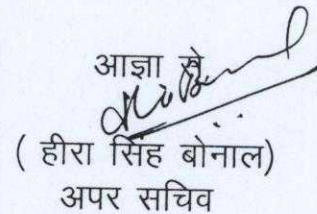 आज्ञा से
( हीरा सिंह बोनाल)
अपर सचिव